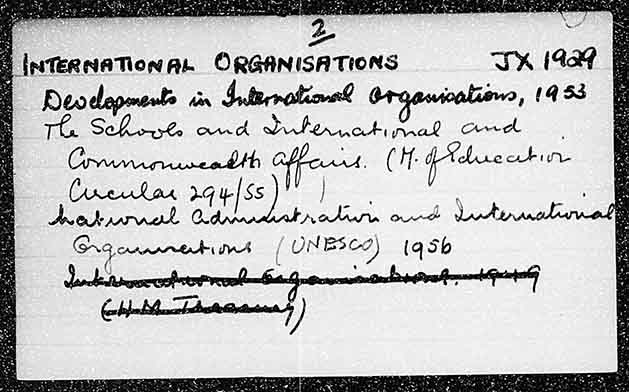 2
INTERNATIONAL ORGANISATIONS JX 1929
Developments in International Organisations, 1953
The Schools and International and
Commonwealth Affairs. (M. of Education
Circular 294/55)
National Administration and International
Organisations (UNESCO) 1956
International Organisations. 1949
(H.M. Treasury)